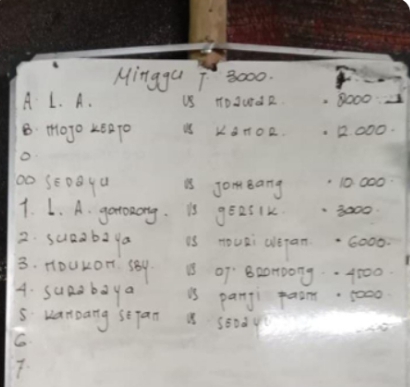 Minggu 7 3000.
A. L. A. VS NDAWAR . 8000
B. MOJO KERTO VS KAMOR . 12 000
O.
OO SEDAYU VS JOMBANG . 10 000
1. L. A. GONDRONG. VS GERSIK . 3000
2. SURABAYA VS NDURI WETAN . 6000
3. NDUKON. SBY VS BRONDONG . 4500
4. SURABAYA VS PANJI FARM . 5000
5 KANDANG SETAN VS
6.
7.